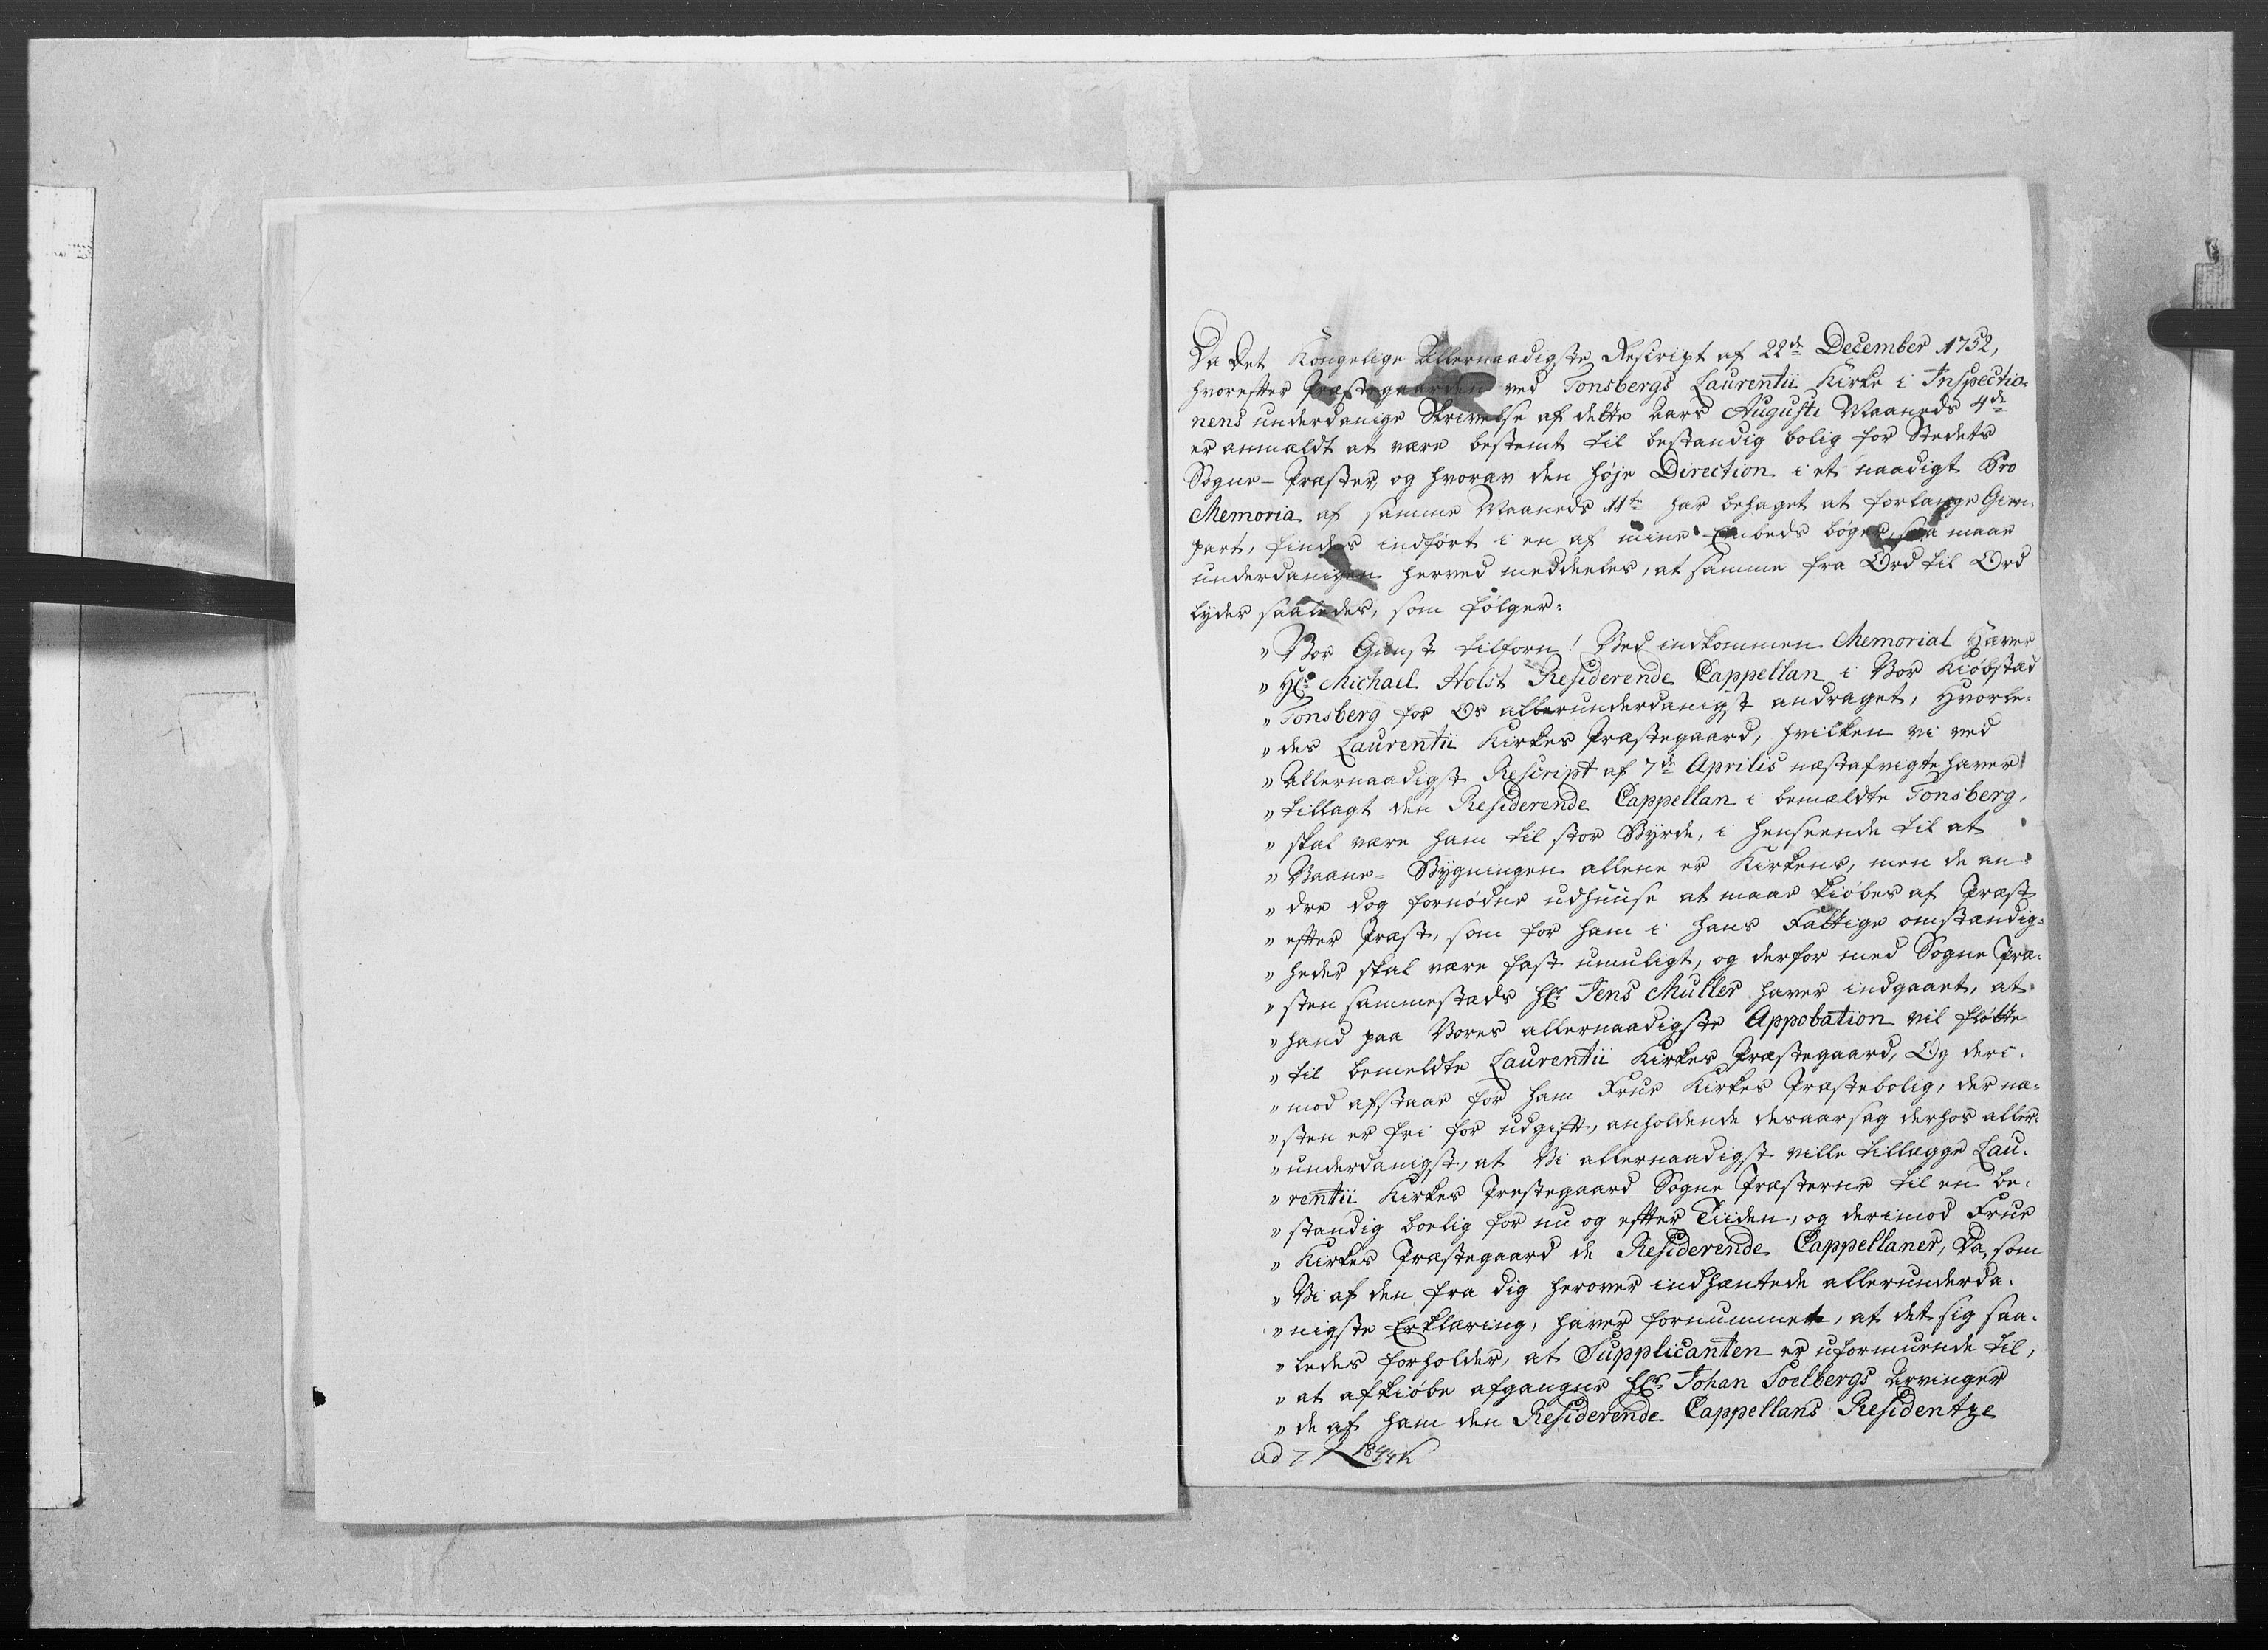 Da det Kongelige Allernaadigste Rescript af 22de December 1752,
hvorefter Præstegaarden ved Tonsbergs Laurentii Kirke i Inspectio-
nens underdanige Skrivelse af dette Aars Augusti Maaneds 4de
er anmældt at være bestemt til bestandig bolig for Stedets
Sogne-Præster, og hvorav den høje Direction i et naadigt Pro
Memoria af samme Maaneds 11te har behaget at forlange Gien-
part, findes indført i en af mine Embeds bøger, saa maae
underdanigen herved meddeeles, at samme fra Ord til Ord
lyder saaledes, som følger:
" Vor Gunst tilforn! Ved indkommen Memorial Haver
" Hr: Michael Holst Residerende Cappellan i Vor Kiøbstæd
" Tonsberg for Os allerunderdanigst andraget, Hvorle-
" des Laurentii Kirkes Præstegaard, hvilken vi ved
" Allernaadigst Rescript af 7de Aprilis næstafvigte haver
" tillagt den Residerende Cappellan i bemældte Tonsberg,
" skal være ham til stor Byrde, i henseende til at
" Vaane-Bygningen allene er Kirkens, men de an-
" dre dog fornødne udhuuse at maae kiøbes af Præst
" efter Præst, som for ham i hans Fattige omstændig-
" heder skal være fast umuligt, og derfor med Sogne Præ-
" sten sammestæds Hr: Jens Muller haver indgaaet, at
" hand paa Vores allernaadigste Appobation vil fløtte
" til bemeldte Laurentii Kirkes Præstegaard, Og deri-
" mod afstaae for ham Frue Kirkes Præstebolig, der næ-
" sten er fri for udgift, anholdende desaarsag derhos aller-
" underdanigst, at Vi allernaadigst ville tillægge Lau-
" rentii Kirkes Prestegaard Sogne Præsterne til en be-
" standig boelig for nu og efter Tiiden, og derimod Frue
" Kirkes Præstegaard de Residerende Cappellaner, Da, som
" Vi af den fra dig herover indhæntede allerunderda-
" nigste Erklæring, haver fornummet, at det sig saa-
" ledes forholder, at Supplicanten er uformuende til,
" at afkiøbe afgangne Hr: Johan Soelbergs Arvinger
" de af ham den Residerende Cappellans Residentze
ad 7